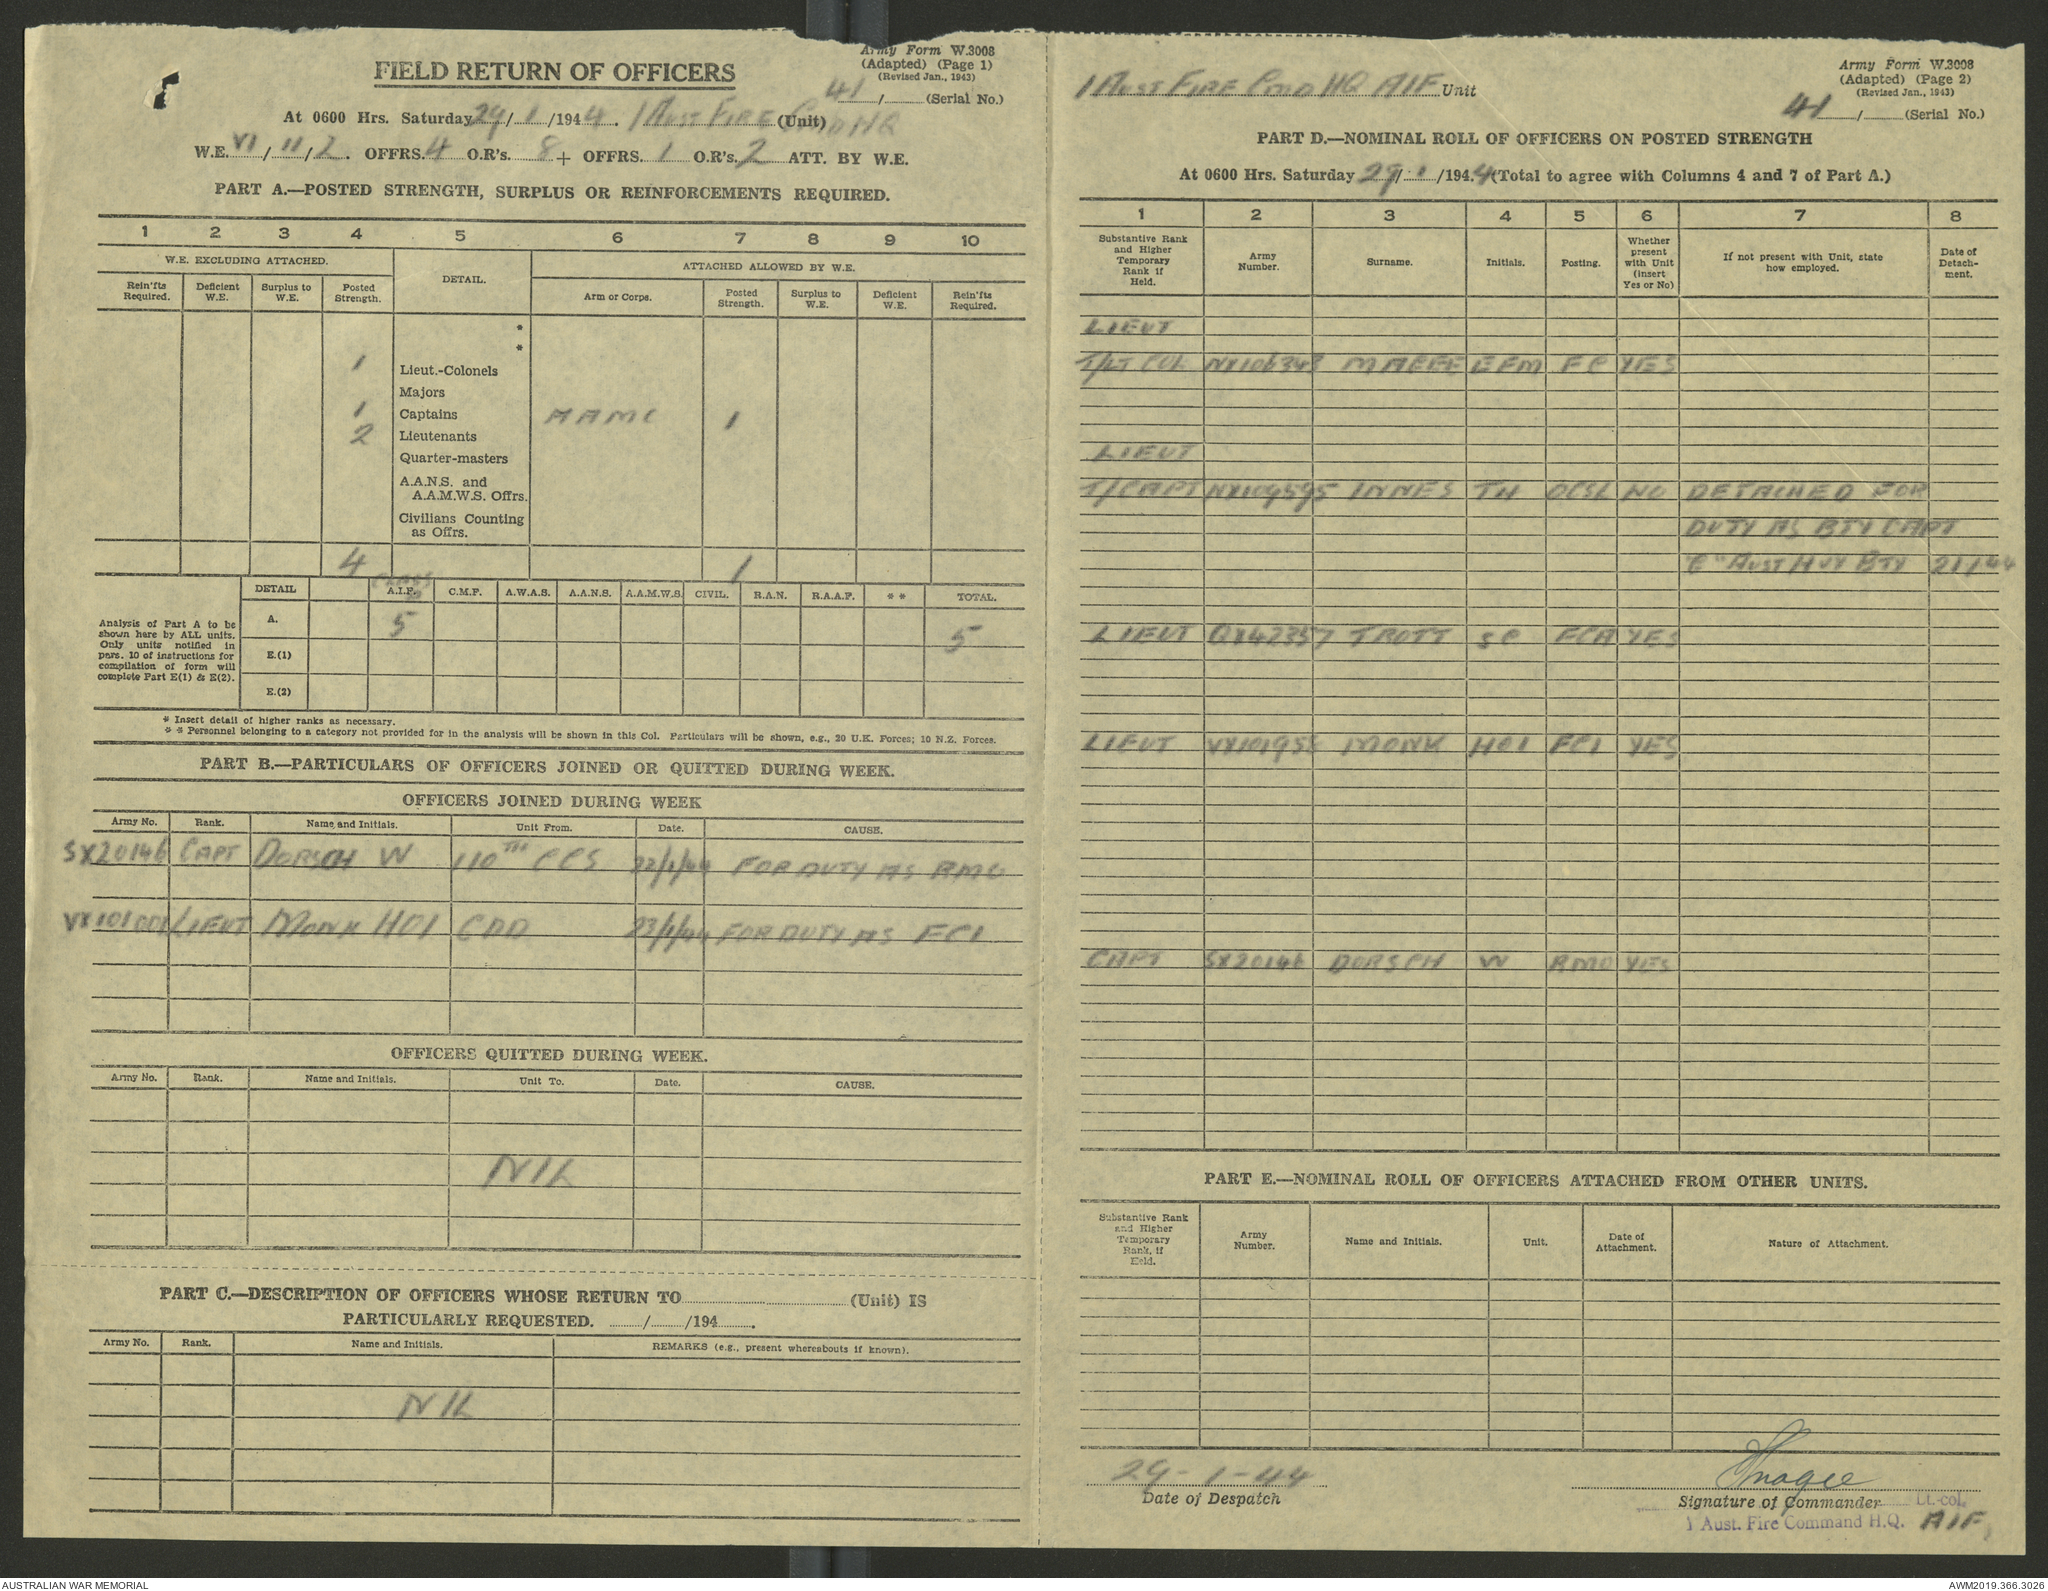 Army Form W.3008
(Adapted) (Page 1)
(Revised Jan., 1943)
41 / (Serial No.)
FIELD RETURN OF OFFICERS
At 0600 Hrs. Saturday 29/1/1944. 1 Aust Fire Cmd HQ (Unit)
W.E. VI/II/2. OFFRS. 4 O.R's. 8 + OFFRS. 1 O.R's. 2 ATT. BY W.E.
PART A.—POSTED STRENGTH, SURPLUS OR REINFORCEMENTS REQUIRED.
1 2 3 4 5 6 7 8 9 10
W.E. EXCLUDING ATTACHED. DETAIL. ATTACHED ALLOWED BY W.E.
Rein'fts Required. Deficient W.E. Surplus to W.E. Posted Strength. Arm or Corps. Posted Strength. Surplus to W.E. Deficient W.E. Rein'fts Required.
*
*
1 Lieut.-Colonels
Majors
1 Captains AAMC 1
2 Lieutenants
Quarter-masters
A.A.N.S. and
A.A.M.W.S. Offrs.
Civilians Counting
as Offrs.
4 1
DETAIL A.I.F. C.M.F. A.W.A.S. A.A.N.S. A.A.M.W.S. CIVIL. R.A.N. R.A.A.F. * * TOTAL.
Analysis of Part A to be shown here by ALL units. Only units notified in pars. 10 of instructions for compilation of form will complete Part E(1) & E(2).
A. 5 5
E.(1)
E.(2)
* Insert detail of higher ranks as necessary.
* * Personnel belonging to a category not provided for in the analysis will be shown in this Col. Particulars will be shown, e.g., 20 U.K. Forces; 10 N.Z. Forces.
PART B.—PARTICULARS OF OFFICERS JOINED OR QUITTED DURING WEEK.
OFFICERS JOINED DURING WEEK
Army No. Rank. Name and Initials. Unit From. Date. CAUSE.
SX20146 CAPT DORSCH W 110TH CCS 22/1/44 FOR DUTY AS RMO
LIEUT MONK HOI CDD 23/1/44 FOR DUTY AS FCI
OFFICERS QUITTED DURING WEEK.
Army No. Rank. Name and Initials. Unit To. Date. CAUSE.
NIL
PART C.—DESCRIPTION OF OFFICERS WHOSE RETURN TO (Unit) IS
PARTICULARLY REQUESTED. / /194 .
Army No. Rank. Name and Initials. REMARKS (e.g., present whereabouts if known).
NIL
Army Form W.3008
(Adapted) (Page 2)
(Revised Jan., 1943)
1 Aust Fire Cmd HQ AIF Unit
41 / (Serial No.)
PART D.—NOMINAL ROLL OF OFFICERS ON POSTED STRENGTH
At 0600 Hrs. Saturday 29/1/1944 (Total to agree with Columns 4 and 7 of Part A.)
1 2 3 4 5 6 7 8
Substantive Rank and Higher Temporary Rank if Held. Army Number. Surname. Initials. Posting. Whether present with Unit (insert Yes or No) If not present with Unit, state how employed. Date of Detachment.
LIEUT
T/LT COL NX106343 MAGEE EFM FC YES
LIEUT
T/CAPT NX109595 INNES TH OCSL NO DETACHED FOR
DUTY AS BTY CAPT
"C" AUST HVY BTY 21/1/44
LIEUT QX42357 TROTT SC FCA YES
LIEUT MONK HOI FCI YES
CAPT SX20146 DORSCH W RMO YES
PART E.—NOMINAL ROLL OF OFFICERS ATTACHED FROM OTHER UNITS.
Substantive Rank and Higher Temporary Rank, if Held. Army Number. Name and Initials. Unit. Date of Attachment. Nature of Attachment.
29-1-44
Date of Despatch
Magee
Signature of Commander Lt.-col.
1 Aust. Fire Command H.Q. AIF
AUSTRALIAN WAR MEMORIAL
AWM2019.366.3026